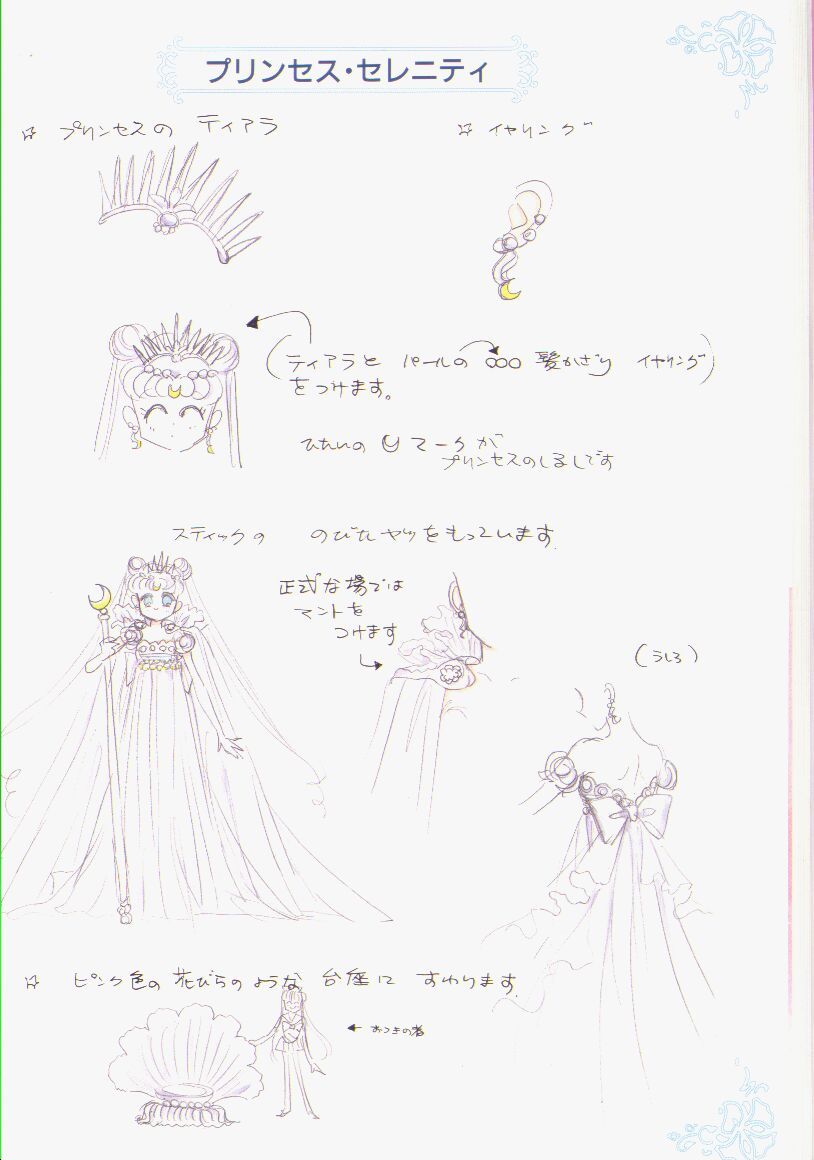 プリンセス・セレニティ
☆ プリンセスの ティアラ
☆ イヤリング
(ティアラと パールの 髪かざり イヤリング)
をつけます。
ひたいの マークが
プリンセスのしるしです
スティックの のびたヤツをもっています.
正式な場では
マントを
つけます
(うしろ)
☆ ピンク色の 花びらのような 台座に すわります.
← おつきの者